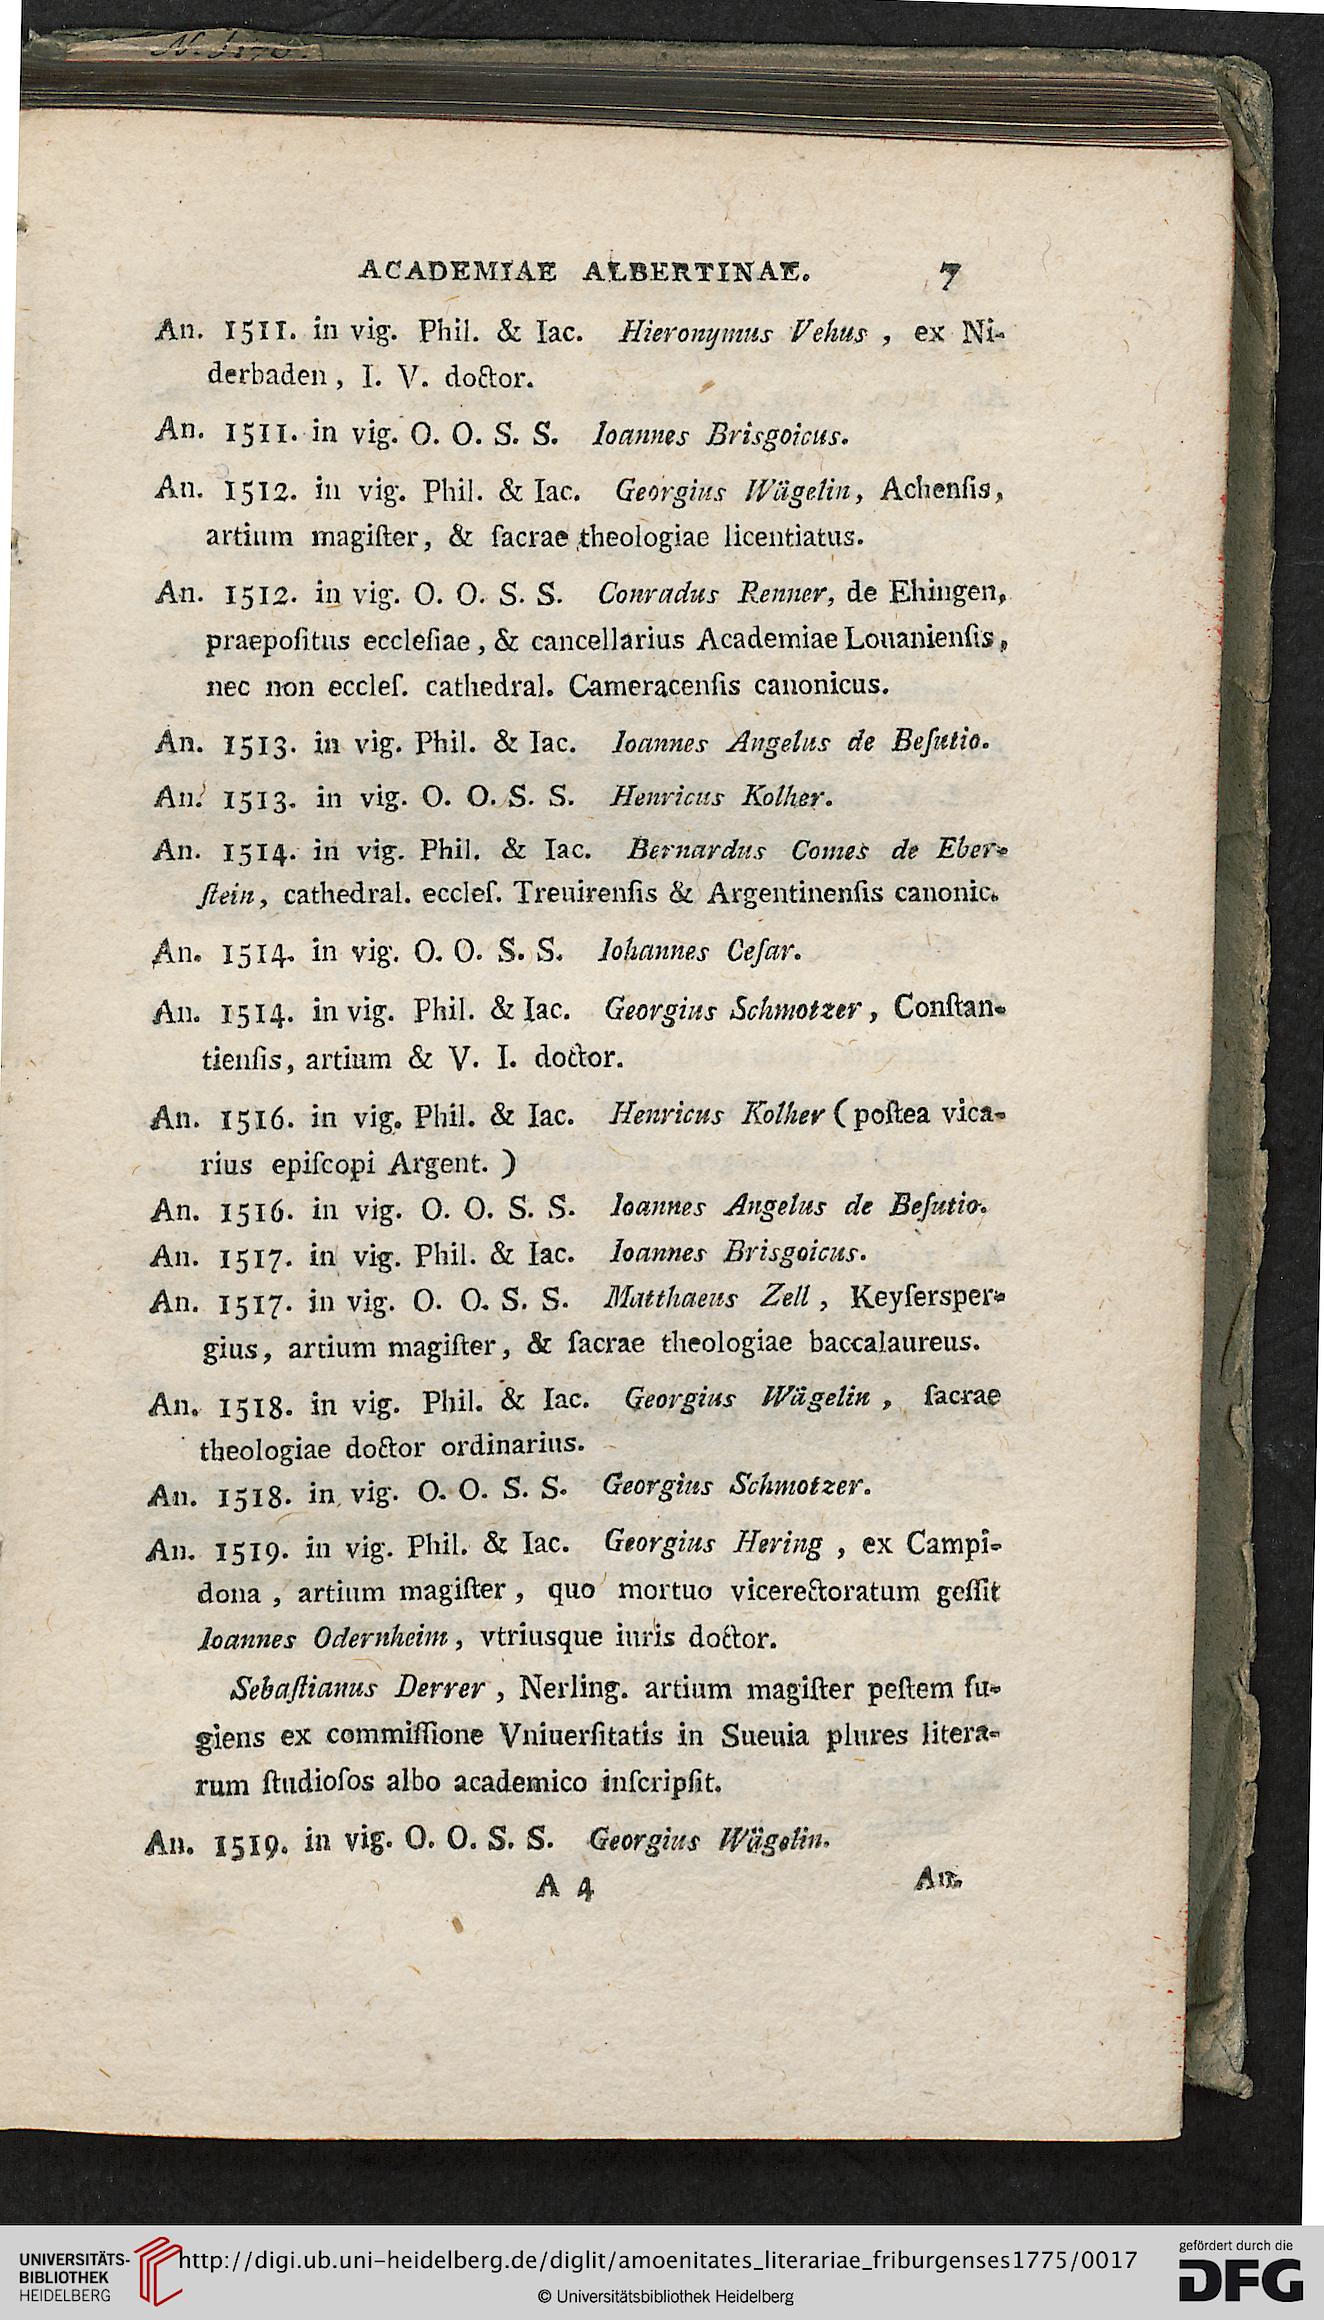 ACADEMIAE ALBERTINAE. 7
An. 1511. in vig. Phil. & Iac. Hieronymus Vehus , ex Ni-
derbaden, I. V. doctor.
An. 1511. in vig. O. O. S. S. Ioannes Brisgoicus.
An. 1512. in vig. Phil. & Iac. Georgius Wägelin, Achenſis,
artium magiſter, & ſacrae theologiae licentiatus.
An. 1512. in vig. O. O. S. S. Conradus Renner, de Ehingen,
praepoſitus eccleſiae, & cancellarius Academiae Louanienſis,
nec non eccleſ. cathedral. Cameracenſis canonicus.
An. 1513. in vig. Phil. & Iac. Ioannes Angelus de Beſutio.
An. 1513. in vig. O. O. S. S. Henricus Kolher.
An. 1514. in vig. Phil. & Iac. Bernardus Comes de Eber-
ſtein, cathedral. eccleſ. Treuirenſis & Argentinenſis canonic.
An. 1514. in vig. O. O. S. S. Iohannes Ceſar.
An. 1514. in vig. Phil. & Iac. Georgius Schmotzer, Conſtan-
tienſis, artium & V. I. doctor.
An. 1516. in vig. Phil. & Iac. Henricus Kolher (poſtea vica-
rius epiſcopi Argent. )
An. 1516. in vig. O. O. S. S. Ioannes Angelus de Beſutio.
An. 1517. in vig. Phil. & Iac. Ioannes Brisgoicus.
An. 1517. in vig. O. O. S. S. Matthaeus Zell, Keyſersper-
gius, artium magiſter, & ſacrae theologiae baccalaureus.
An. 1518. in vig. Phil. & Iac. Georgius Wägelin , ſacrae
theologiae doctor ordinarius.
An. 1518. in vig. O. O. S. S. Georgius Schmotzer.
An. 1519. in vig. Phil. & Iac. Georgius Hering , ex Campi-
dona , artium magiſter, quo mortuo vicerectoratum geſſit
Ioannes Odernheim, vtriusque iuris doctor.
Sebaſtianus Derrer , Nerling. artium magiſter peſtem fu-
giens ex commiſſione Vniuerſitatis in Sueuia plures litera-
rum ſtudioſos albo academico inſcripſit.
An. 1519. in vig. O. O. S. S. Georgius Wägelin.
A 4 An.
UNIVERSITÄTS-
BIBLIOTHEK
HEIDELBERG
http://digi.ub.uni-heidelberg.de/diglit/amoenitates_literariae_friburgenses1775/0017
© Universitätsbibliothek Heidelberg
gefördert durch die
DFG